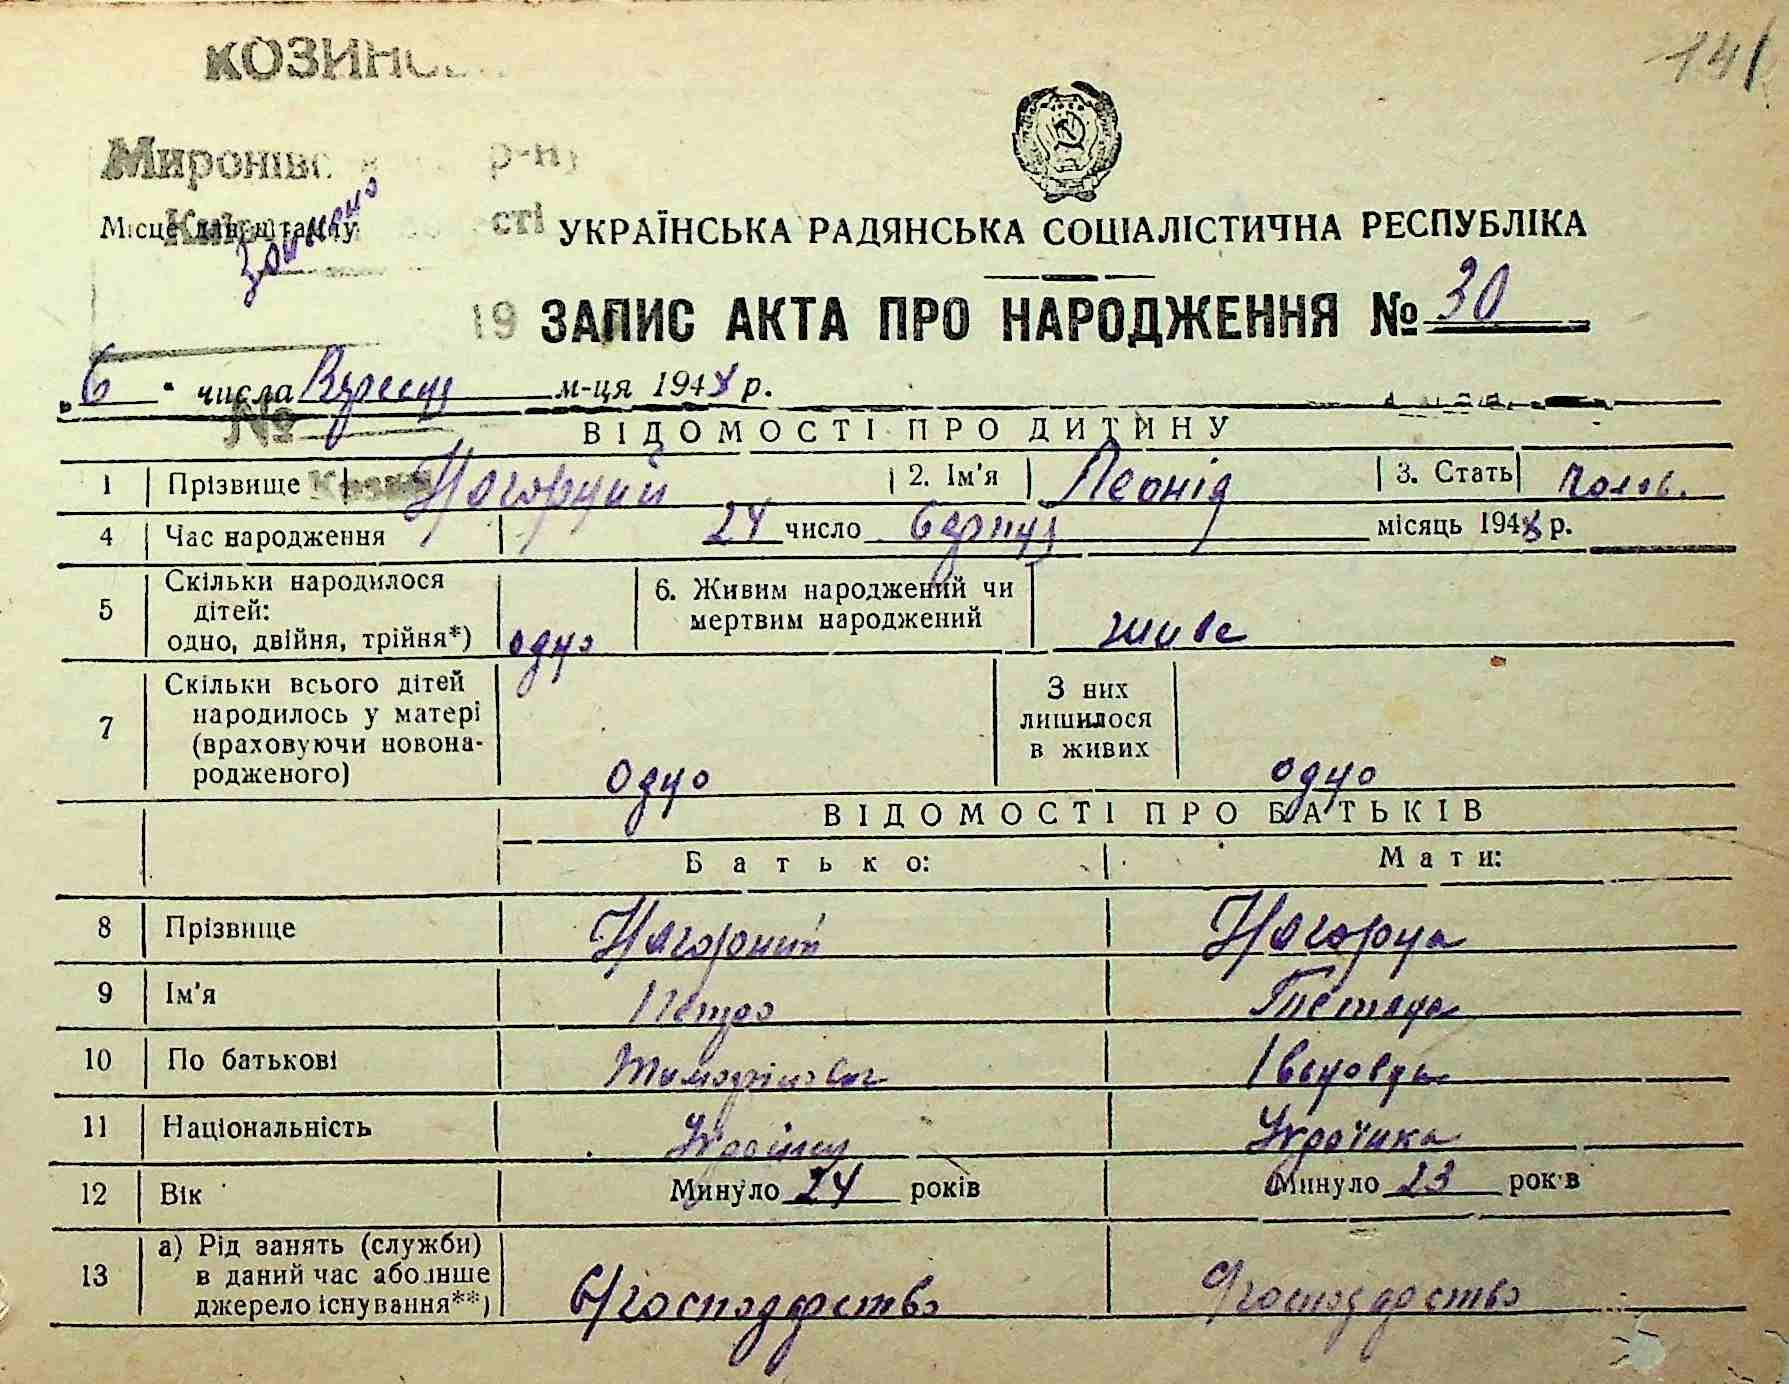 141
КОЗИНС
Миронівс р-ну
Місце для штампу
Київ сті
Замінено
УКРАЇНСЬКА РАДЯНСЬКА СОЦІАЛІСТИЧНА РЕСПУБЛІКА
19 ЗАПИС АКТА ПРО НАРОДЖЕННЯ № 30
„6" числа Вересня м-ця 1948 р.
№
ВІДОМОСТІ ПРО ДИТИНУ
1 Прізвище Нагорний 2. Ім'я Леонід 3. Стать Чолов.
4 Час народження 24 число Серпня місяць 1948 р.
5 Скільки народилося дітей: одно, двійня, трійня*) одно 6. Живим народжений чи мертвим народжений живе
7 Скільки всього дітей народилось у матері (враховуючи новонародженого) Одно З них лишилося в живих одно
ВІДОМОСТІ ПРО БАТЬКІВ
Батько: Мати:
8 Прізвище Нагорний Нагорна
9 Ім'я Петро
10 По батькові Тимофійович Івановна
11 Національність Українець Українка
12 Вік Минуло 24 років Минуло 23 років
13 а) Рід занять (служби) в даний час або інше джерело існування**) С/господарство С/господарство